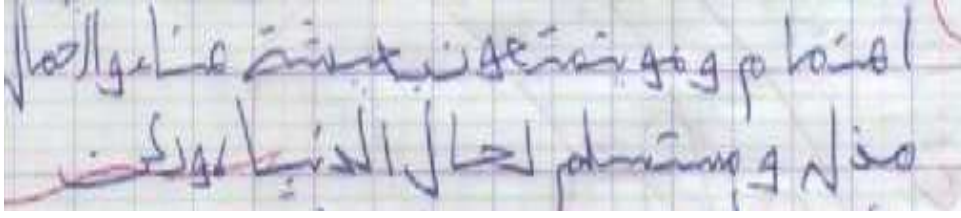 اهتمام وفهو يتمتعون بعيشة هناء والجمال
مذل ومستسلم لحال الدنيا، ولكن